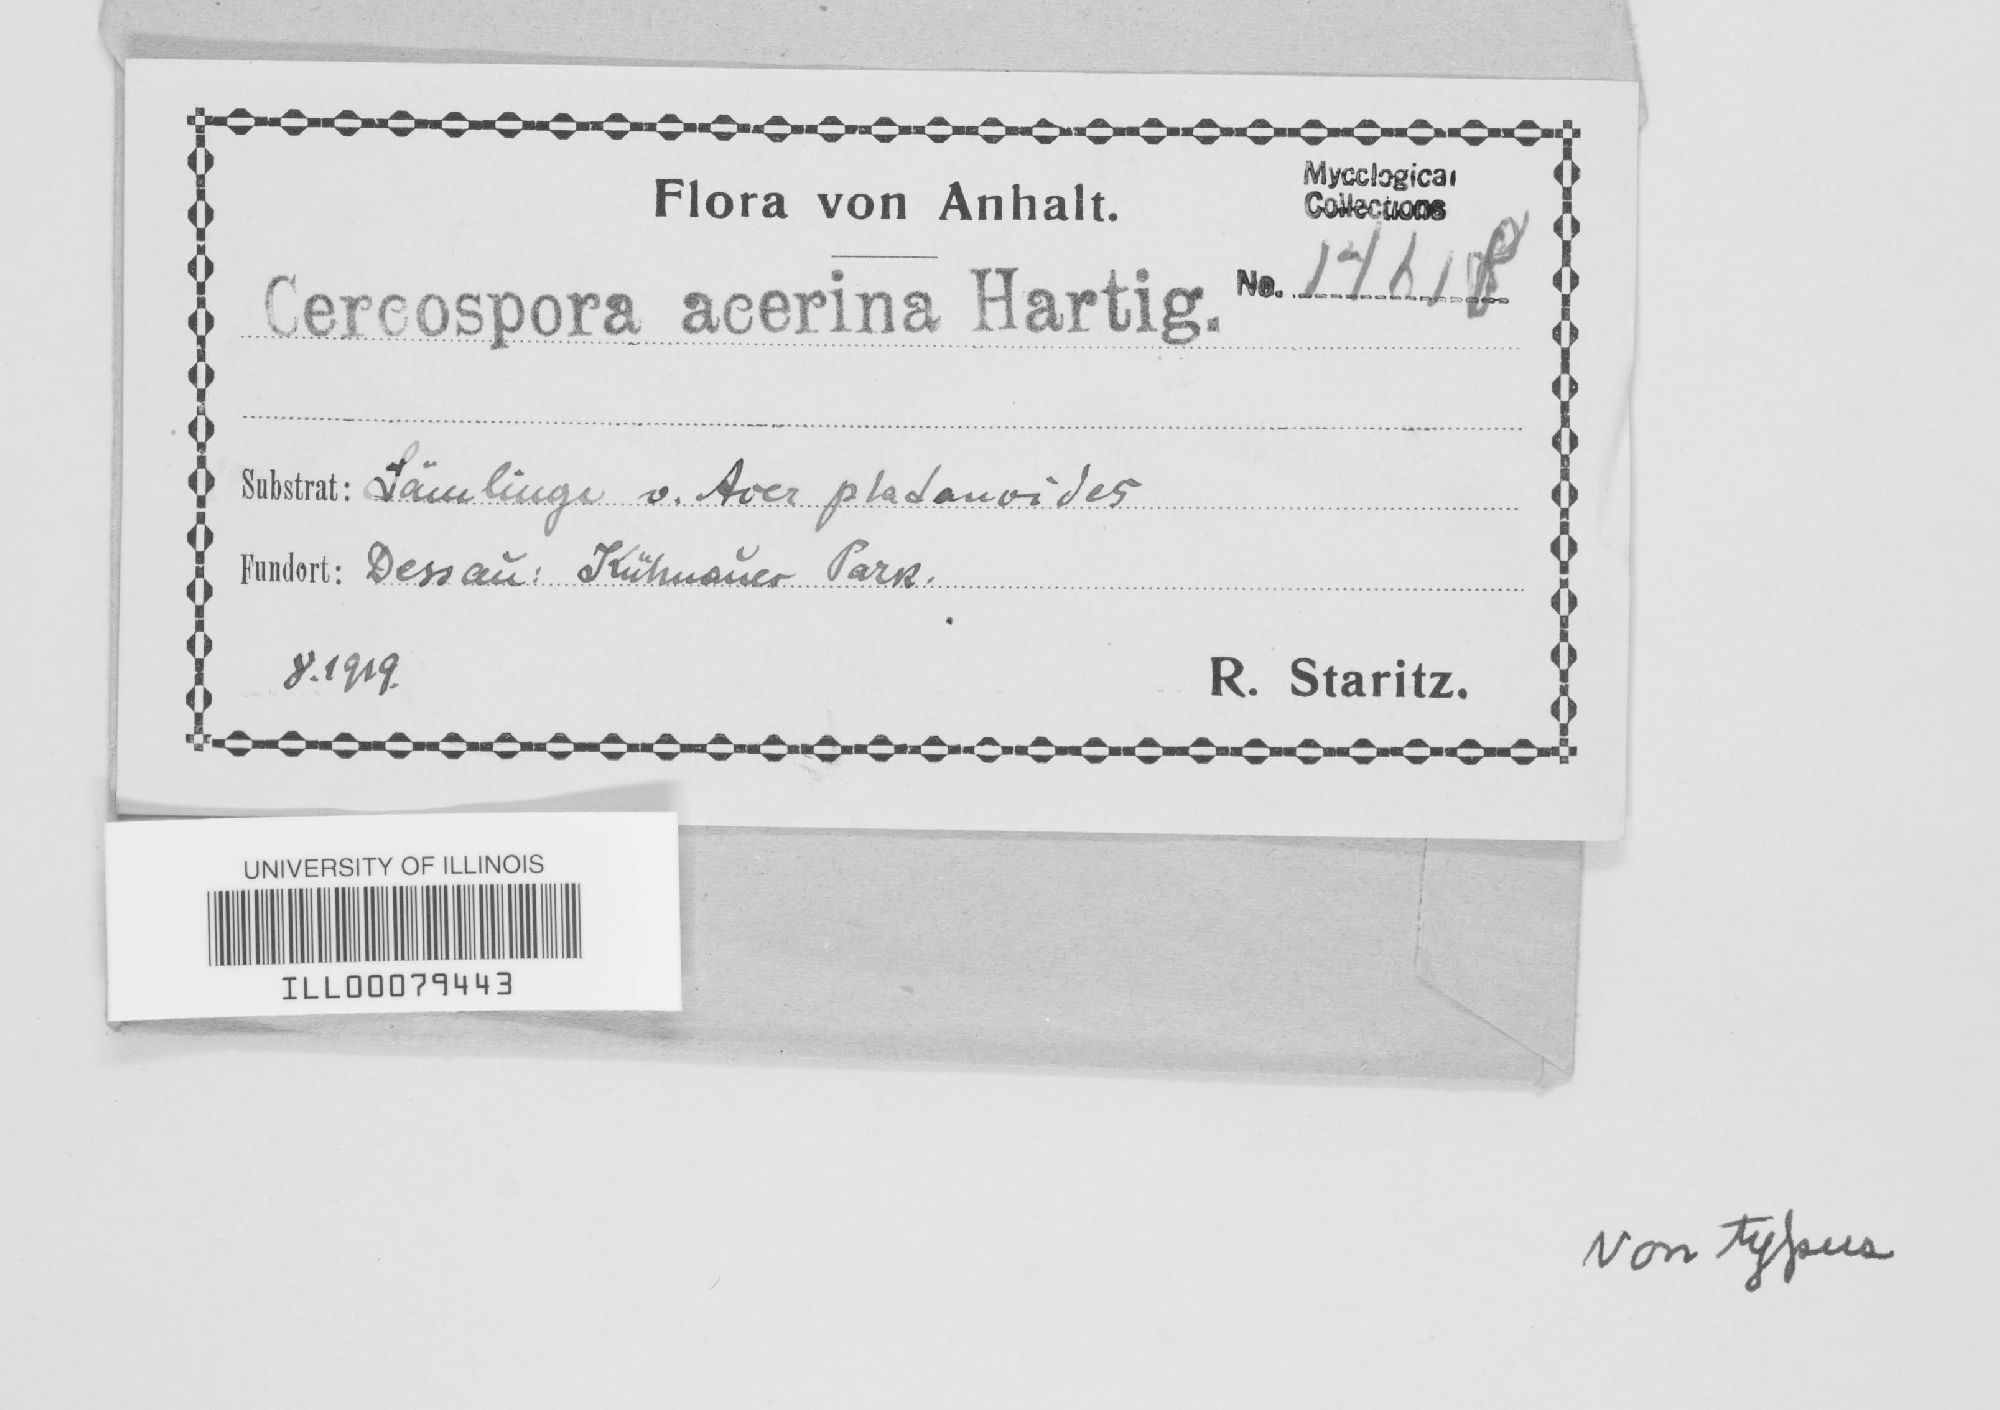 Flora von Anhalt.
Mycological
Collections
No. 14618
Cercospora acerina Hartig.
Substrat: Sämlinge v. Acer platanoides
Fundort: Dessau: Kühnauer Park.
8.1919
R. Staritz.
UNIVERSITY OF ILLINOIS
ILL00079443
Non typus